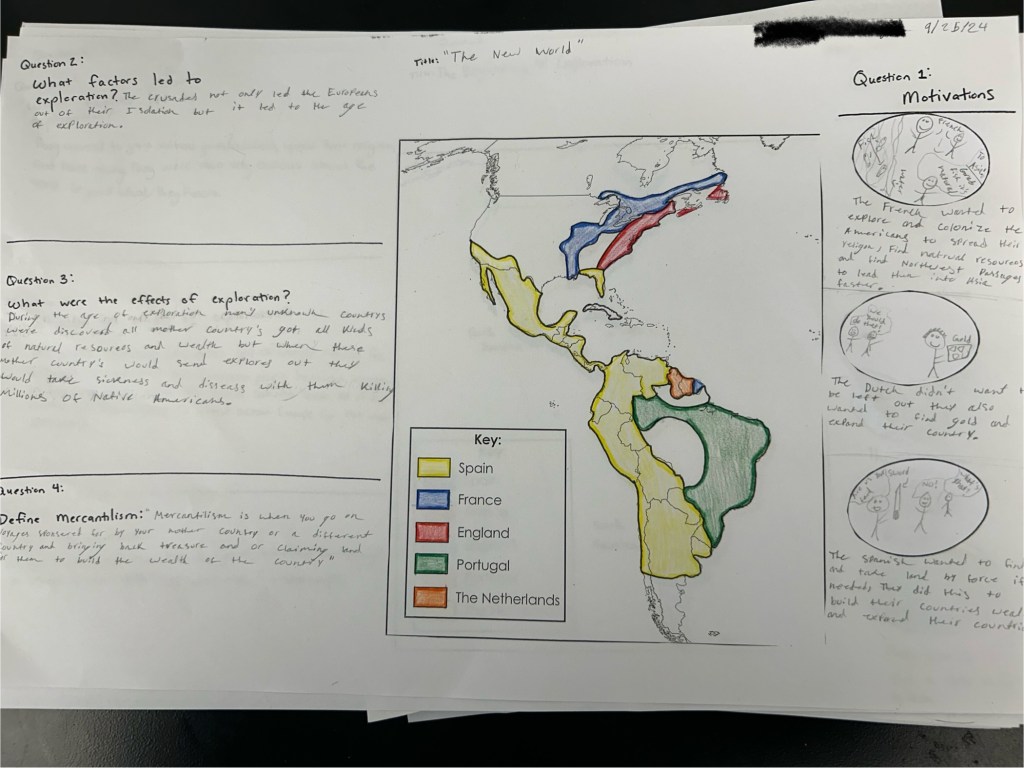 9/25/24
Title: "The New World"
Question 2:
What factors led to
exploration? The crusades not only led the Europeans
out of their Isolation but it led to the age
of exploration.
Question 3:
What were the effects of exploration?
During the age of exploration many unknown countrys
were discovered all mother country's got all kinds
of natural resources and wealth but when these
mother country's would send explores out they
would take sickness and diseases with them Killing
Millions of Native Americans.
Question 4:
Define mercantilism: "Mercantilism is when you go on
voyages sponsered for by your mother country or a different
country and bringing back treasure and or claiming land
them to build the wealth of the country"
Key:
Spain
France
England
Portugal
The Netherlands
Question 1:
Motivations
French
The French wanted to
explore and colonize the
Americans to spread their
religon, find natural resources
and find Northwest Passages
to lead them into Asia
faster.
Gold
The Dutch didn't want t
be left out they also
wanted to find gold and
expand their country.
No!
The Spanish wanted to find
and take land by force if
needed, They did this to
build their countries weal
and expand their countri